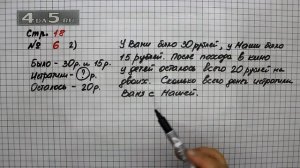 4D5.RU
Стр. 18
№ 6 2)
Было - 30р. и 15р.
Истратили - ?р.
Осталось - 20р.
У Вани было 30 рублей, у Маши было
15 рублей. После похода в кино
у детей осталось всего 20 рублей на
двоих. Сколько всего денег истратили
Ваня с Машей.